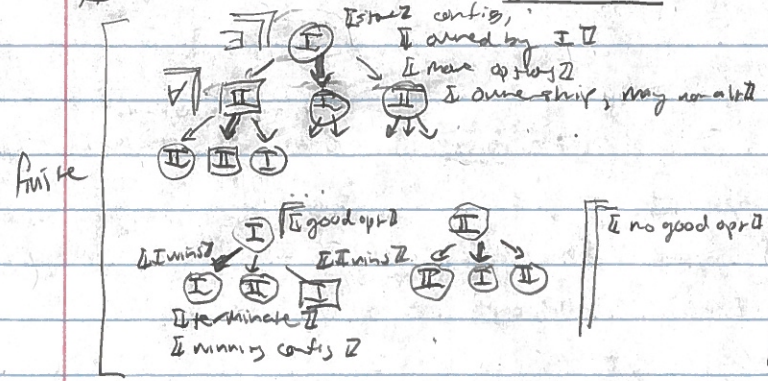 ∃ I ⟦start⟧ config,
⟦ owned by I ⟧
∀ II I II ⟦ move options ⟧
⟦ ownership, may not alt ⟧
II II I
finite
I ⟦ good opt ⟧ II ⟦ no good opt ⟧
⟦ I wins ⟧ ⟦ II wins ⟧
I II I II I II
⟦ terminate ⟧
⟦ winning config ⟧